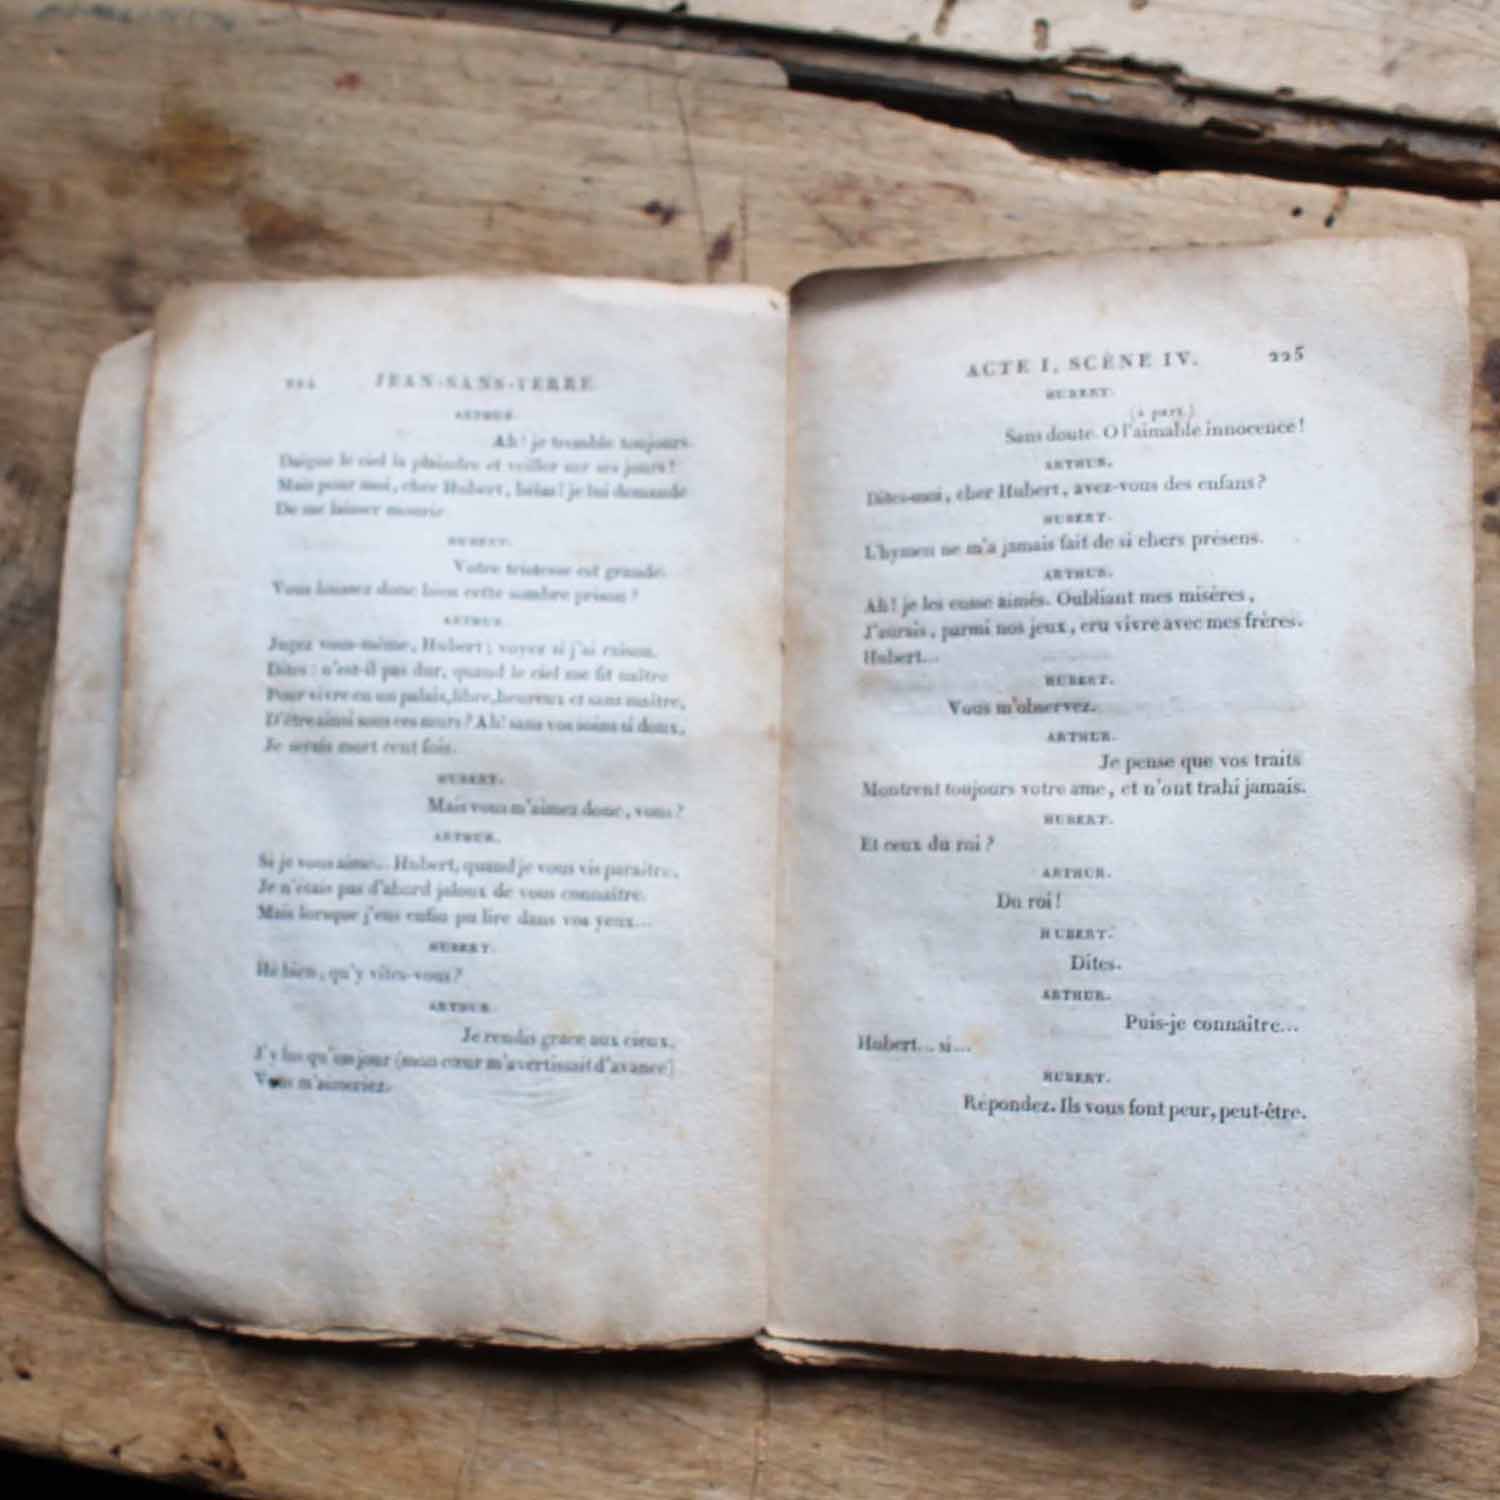 224 JEAN-SANS-TERRE
ARTHUR.
Ah! je tremble toujours.
Daigne le ciel la plaindre et veiller sur ses jours!
Mais pour moi, cher Hubert, hélas! je lui demande
De me laisser mourir.
HUBERT.
Votre tristesse est grande.
Vous haïssez donc bien cette sombre prison?
ARTHUR.
Jugez vous-même, Hubert; voyez si j'ai raison.
Dites: n'est-il pas dur, quand le ciel me fit naître
Pour vivre en un palais, libre, heureux et sans maître,
D'être ainsi sous ces murs? Ah! sans vos soins si doux,
Je serais mort cent fois.
HUBERT.
Mais vous m'aimez donc, vous?
ARTHUR.
Si je vous aime... Hubert, quand je vous vis paraître,
Je n'étais pas d'abord jaloux de vous connaître.
Mais lorsque j'eus enfin pu lire dans vos yeux...
HUBERT.
Hé bien, qu'y vîtes-vous?
ARTHUR.
Je rendis grace aux cieux.
J'y lus qu'un jour (mon cœur m'avertissait d'avance)
Vous m'aimeriez.
ACTE I, SCÈNE IV. 225
HUBERT.
(à part.)
Sans doute. O l'aimable innocence!
ARTHUR.
Dites-moi, cher Hubert, avez-vous des enfans?
HUBERT.
L'hymen ne m'a jamais fait de si chers présens.
ARTHUR.
Ah! je les eusse aimés. Oubliant mes misères,
J'aurais, parmi nos jeux, cru vivre avec mes frères.
Hubert...
HUBERT.
Vous m'observez.
ARTHUR.
Je pense que vos traits
Montrent toujours votre ame, et n'ont trahi jamais.
HUBERT.
Et ceux du roi?
ARTHUR.
Du roi!
HUBERT.
Dites.
ARTHUR.
Puis-je connaître...
Hubert... si...
HUBERT.
Répondez. Ils vous font peur, peut-être.